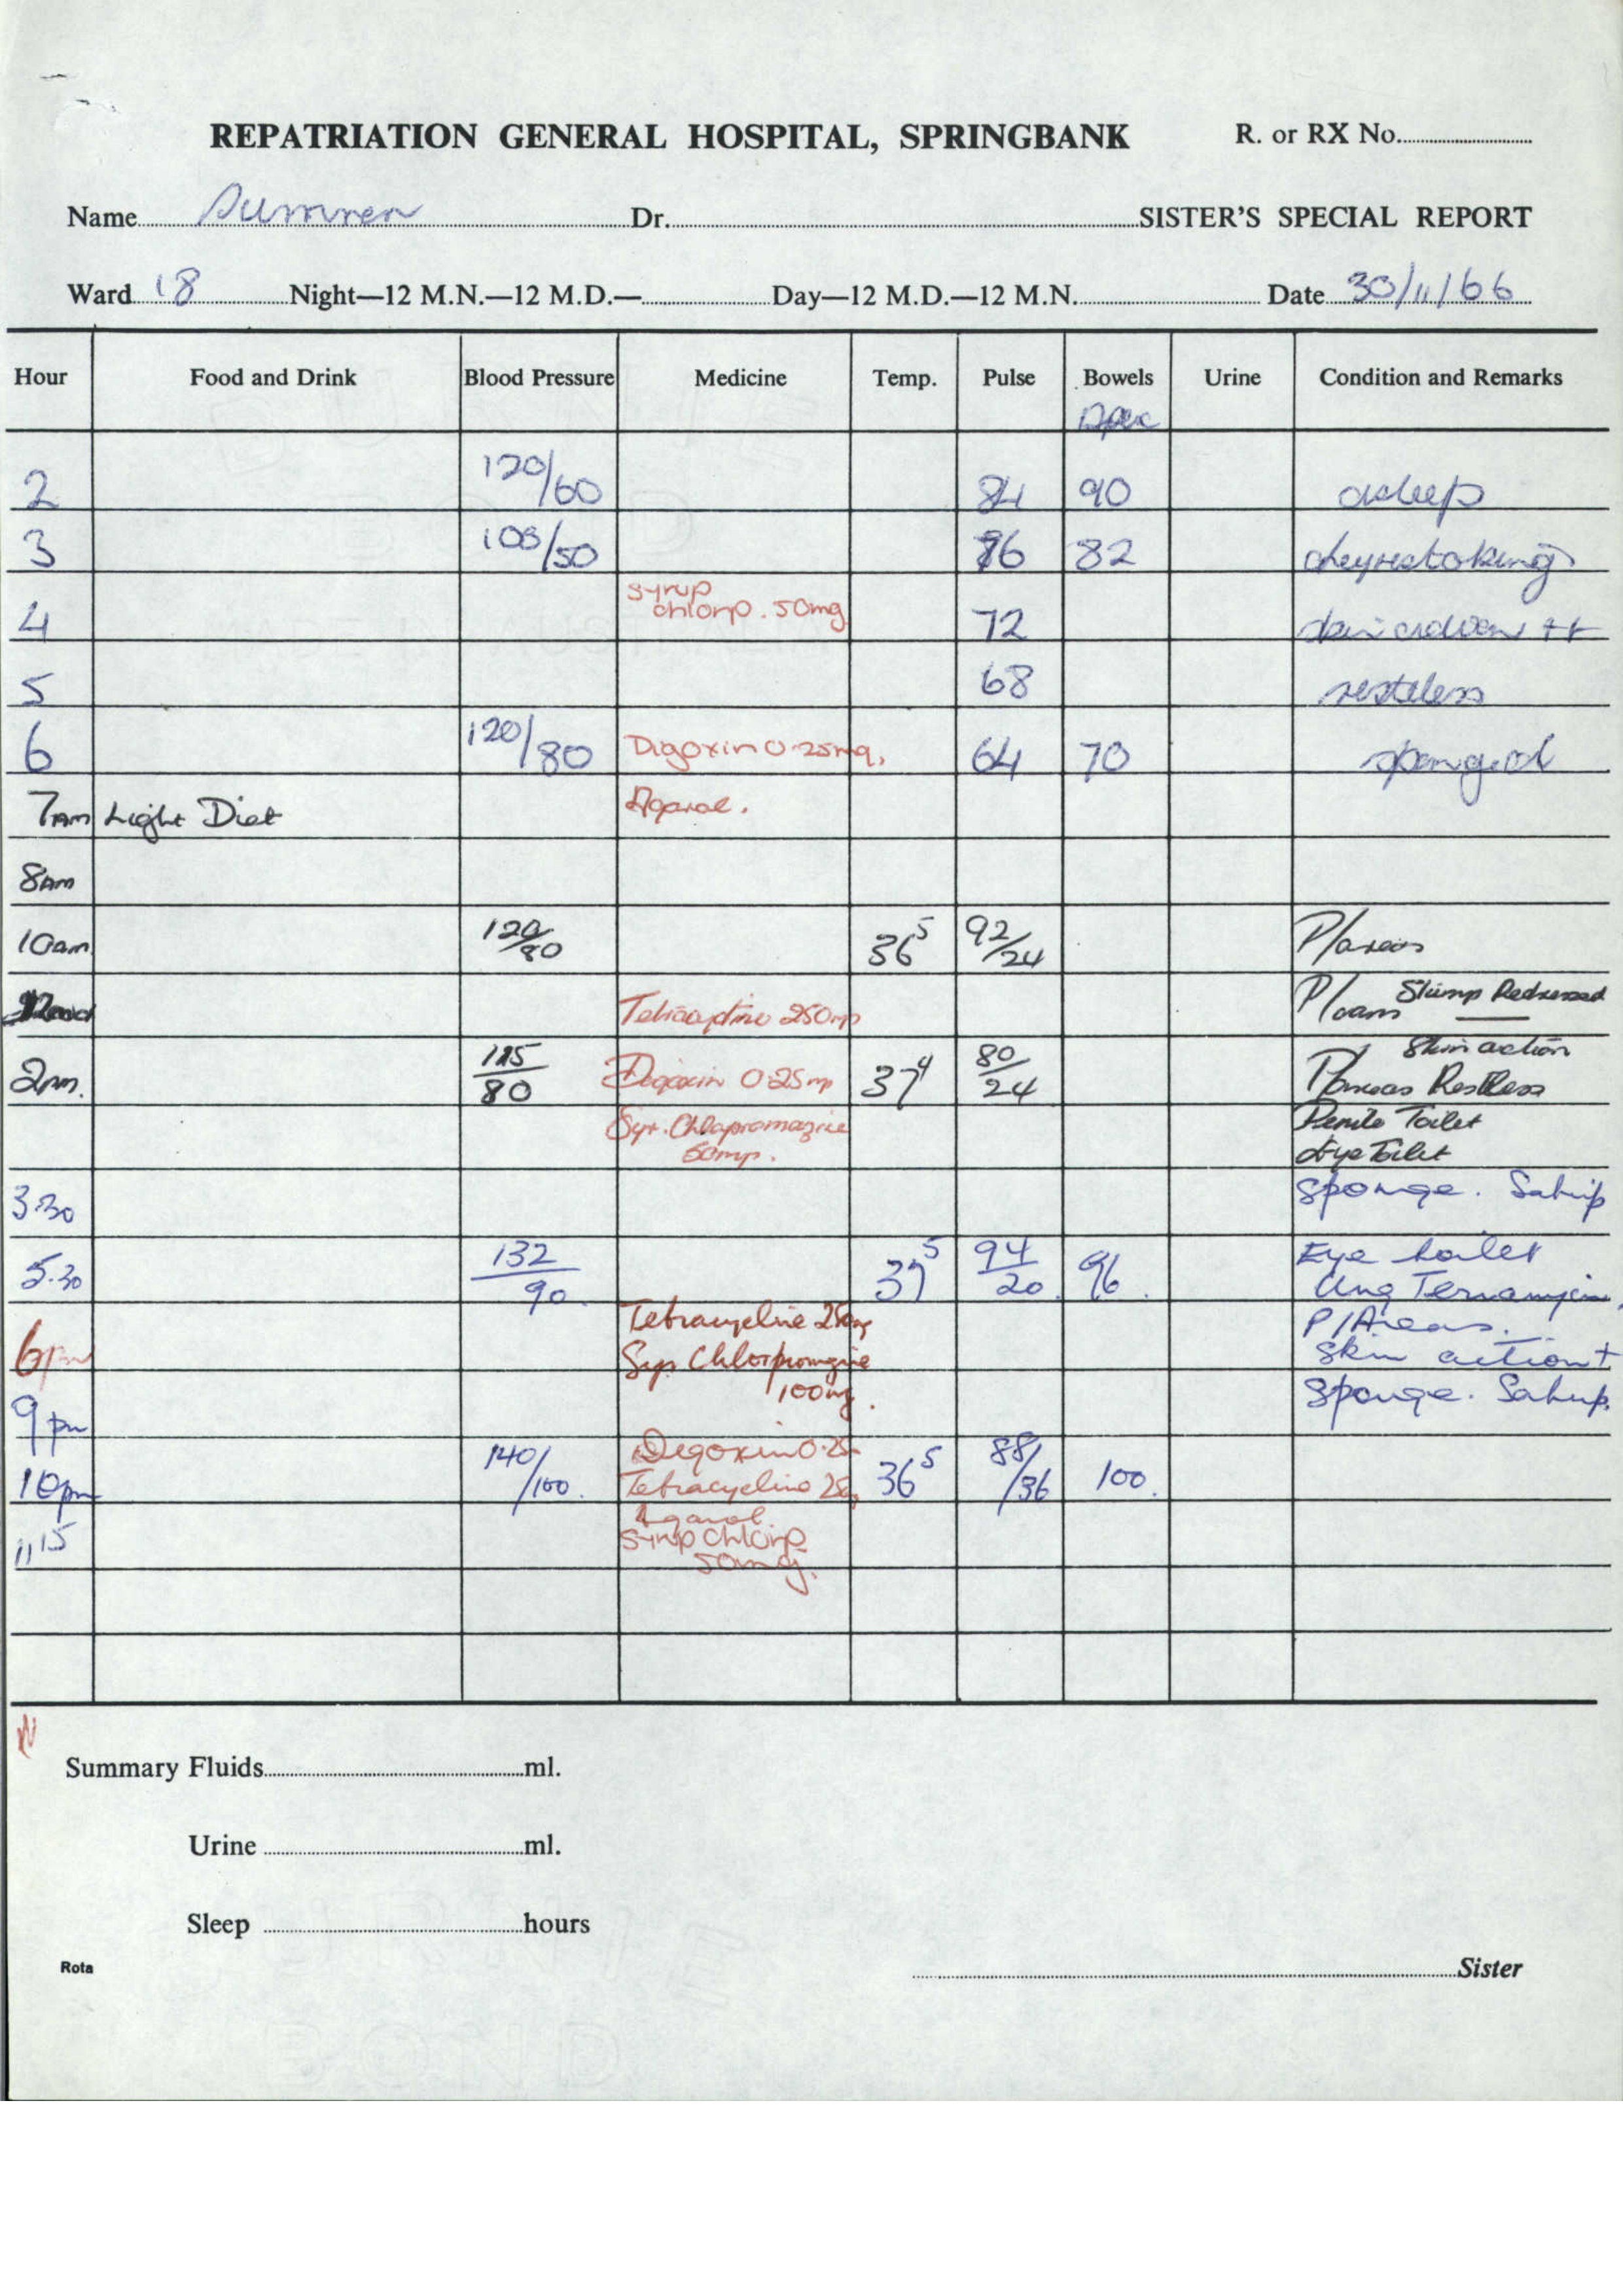 REPATRIATION GENERAL HOSPITAL, SPRINGBANK R. or RX No.
Name Dr. SISTER'S SPECIAL REPORT
Ward 18 Night—12 M.N.—12 M.D.— Day—12 M.D.—12 M.N. Date 30/11/66
Hour Food and Drink Blood Pressure Medicine Temp. Pulse Bowels Urine Condition and Remarks
Apex
2 120/60 84 90 asleep
3 105/50 76 82
syrup
4 chlorp. 50mg 72 ++
5 68 restless
6 120/80 Digoxin 0.25mg. 64 70 sponged
7AM Light Diet Agarol.
8AM
10am 120/80 36⁵ 92/24 P/areas
Tetracycline 250mg Stump Redressed
Skin action
2pm. 115/80 Digoxin 0.25mg 37⁴ 80/24 P/areas Restless
Syr. Chlapromazine Penile Toilet
50mg. Eye Toilet
3.30 sponge.
5.30 132/90 37⁵ 94/20 96 Eye toilet
Ung Terramycin
Tetracycline 250mg P/Areas.
6pm Syr Chlorpromazine skin action +
100mg.
9pm sponge.
Digoxin 0.25
10pm 140/100. Tetracycline 36⁵ 88/36 100.
Agarol.
11 15 Syrup Chlorp
50mg.
Summary Fluids ml.
Urine ml.
Sleep hours
Rota Sister
BOND